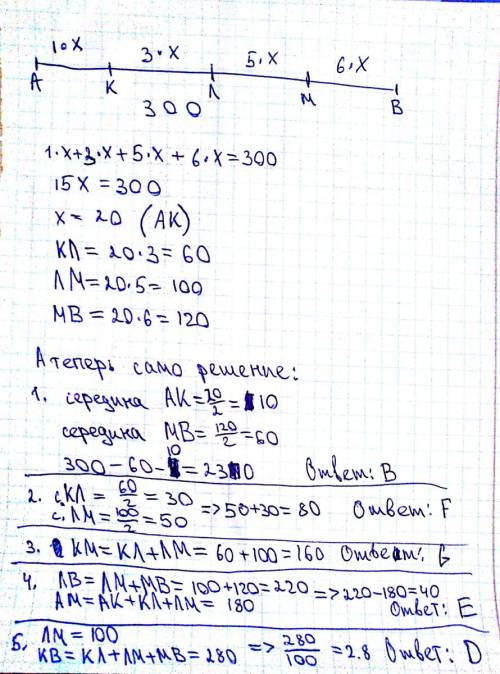 1•x 3•x 5•x 6•x
А К Л М В
300
1•x+3•x+5•x+6•x=300
15x=300
x=20 (АК)
КЛ=20•3=60
ЛМ=20•5=100
МВ=20•6=120
А теперь само решение:
1. середина АК=20/2=10
середина МВ=120/2=60
300-60-10=230 Ответ: В
2. с.КЛ=60/2=30
с.ЛМ=100/2=50 =>50+30=80 Ответ: F
3. КМ=КЛ+ЛМ=60+100=160 Ответ:
4. ЛВ=ЛМ+МВ=100+120=220 =>220-180=40
АМ=АК+КЛ+ЛМ=180 Ответ: E
5. ЛМ=100
КВ=КЛ+ЛМ+МВ=280 => 280/100=2.8 Ответ: D